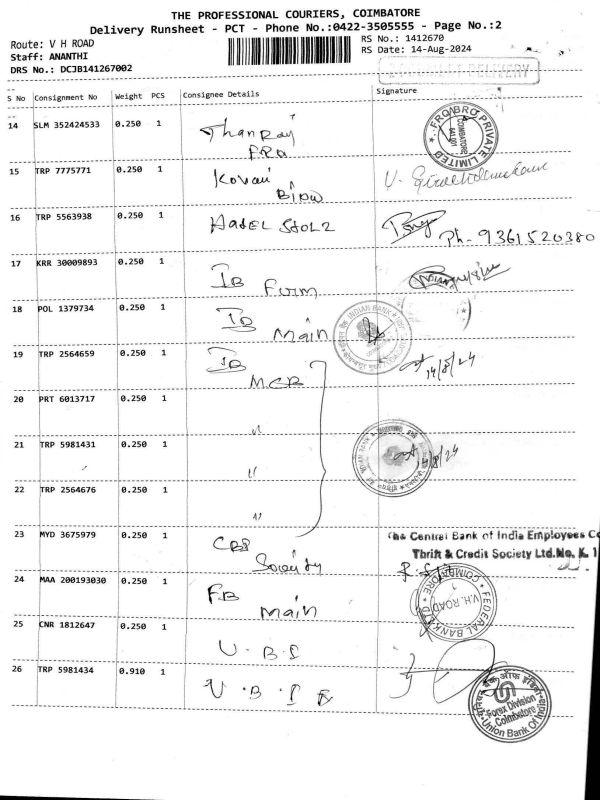 THE PROFESSIONAL COURIERS, COIMBATORE
Delivery Runsheet - PCT - Phone No.:0422-3505555 - Page No.:2
Route: V H ROAD
RS No.: 1412670
Staff: ANANTHI
RS Date: 14-Aug-2024
DRS No.: DCJB141267002
S No Consignment No Weight PCS Consignee Details Signature
14 SLM 352424533 0.250 1
PRIVATE LIMITED
COIMBATORE
641 001
15 TRP 7775771 0.250 1 Kovai
16 TRP 5563938 0.250 1 Ph- 9361520380
17 KRR 30009893 0.250 1 IB
18 POL 1379734 0.250 1 IB
Main
INDIAN BANK
19 TRP 2564659 0.250 1 IB
MCB
14/8/24
20 PRT 6013717 0.250 1 "
21 TRP 5981431 0.250 1 "
14/8/24
22 TRP 2564676 0.250 1 "
23 MYD 3675979 0.250 1 CBI
Society
The Central Bank of India Employees Co
Thrift & Credit Society Ltd.No. K. 1
24 MAA 200193030 0.250 1 FB
Main
FEDERAL BANK LTD
V.H. ROAD
COIMBATORE
25 CNR 1812647 0.250 1 U.B.I
26 TRP 5981434 0.910 1 U.B.I
यूनियन बैंक ऑफ इंडिया
Forex Division
Coimbatore
Union Bank Of India